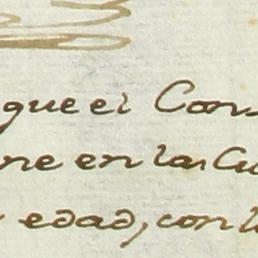 que el Con
ne en las Cu
edad, con l